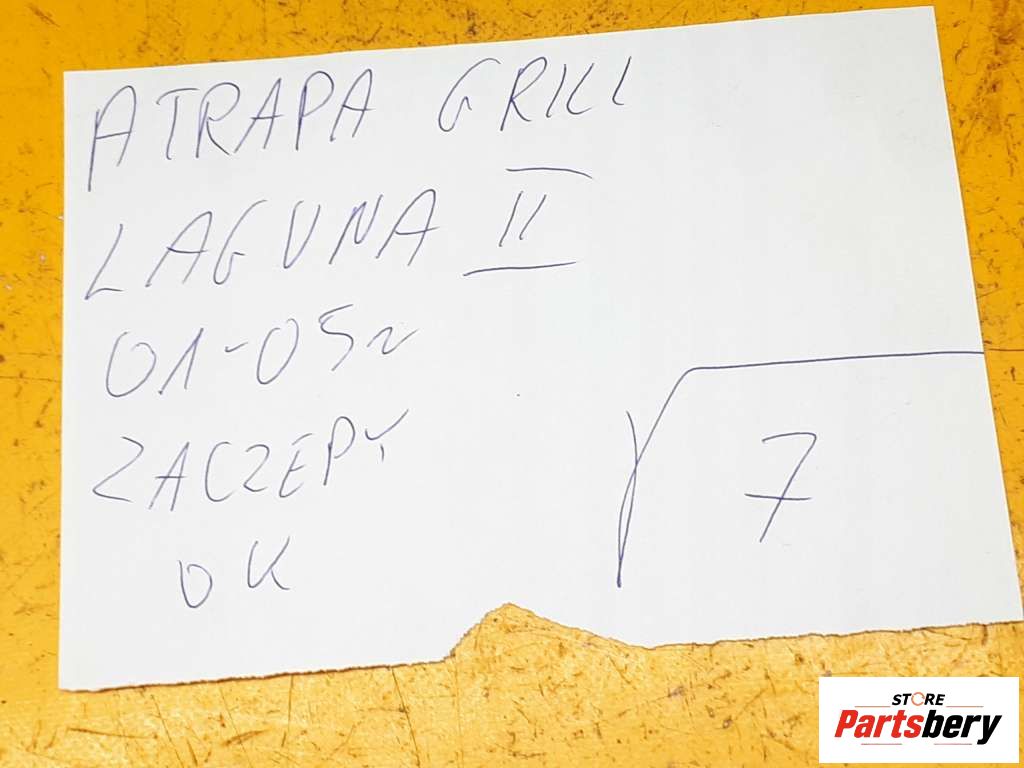 ATRAPA GRILL
LAGUNA II
01-05r
ZACZEPY
OK
7
STORE
Partsbery